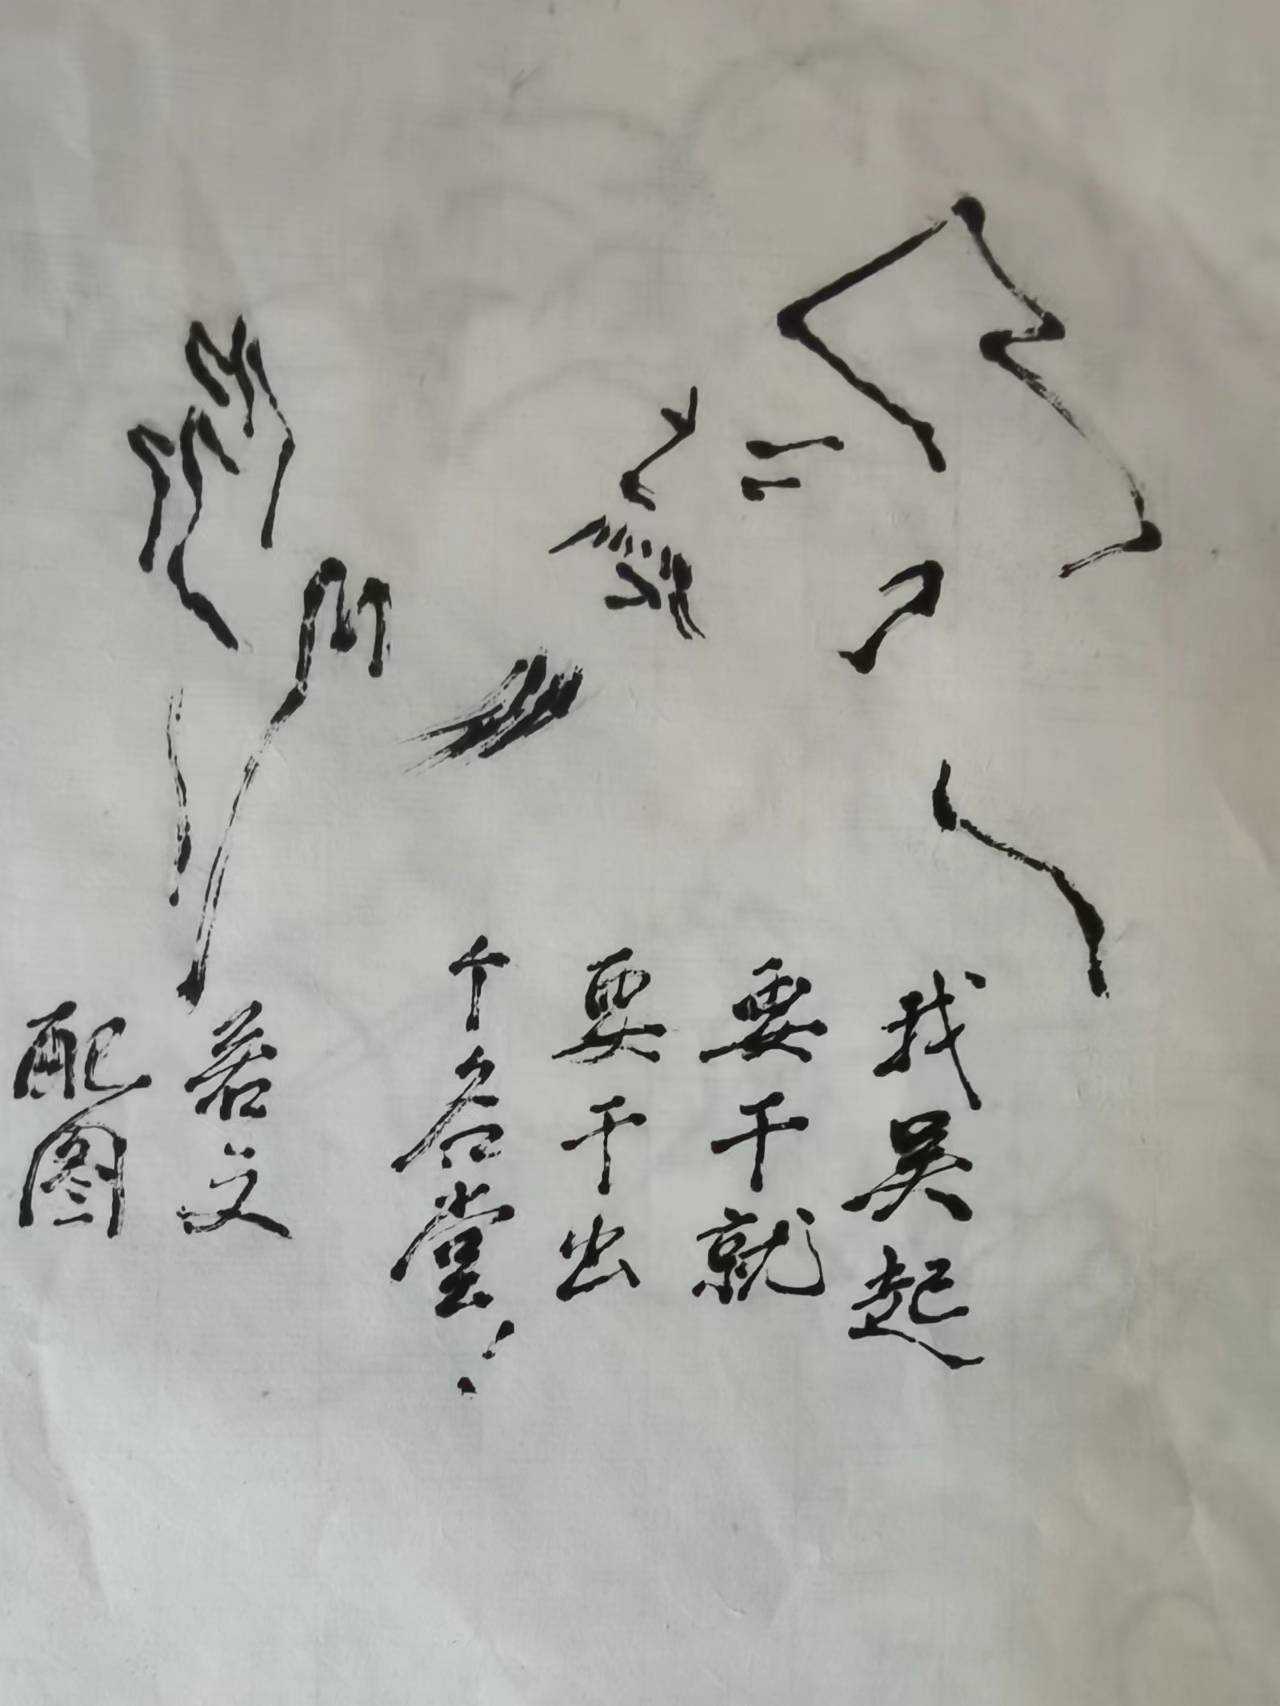 我吴起
要干就
要干出
个名堂！
若文
配图